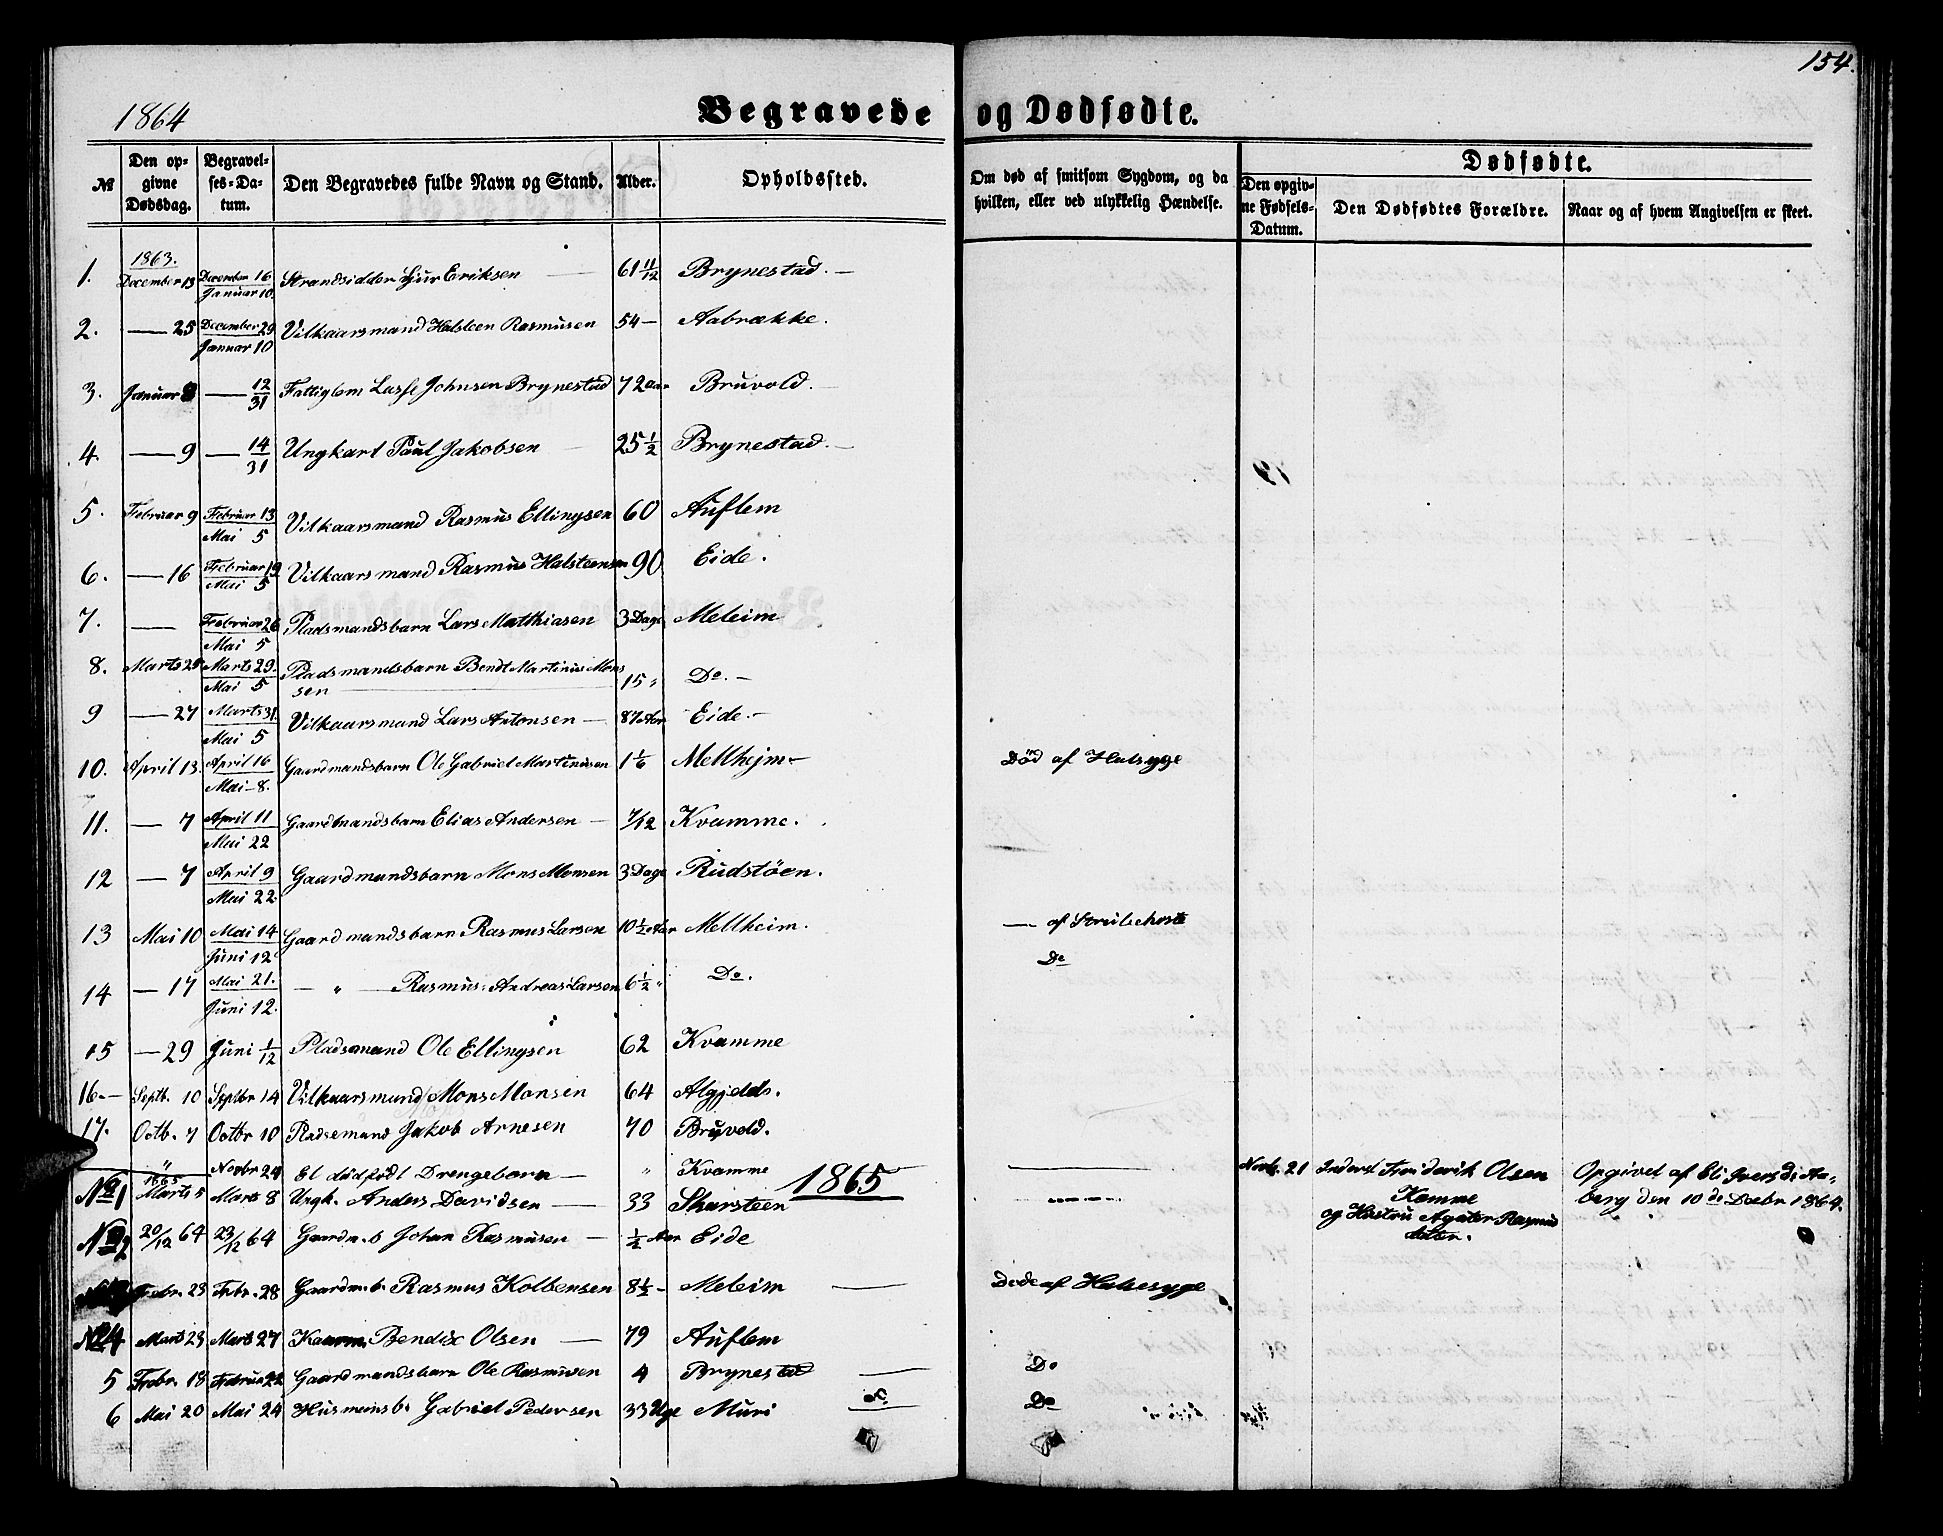 154.
1864
Begravede og Dødfødte.
№
Den opgivne Dødsdag.
Begravelses-Datum.
Den Begravedes fulde Navn og Stand.
Alder.
Opholdssted.
Om død af smitsom Sygdom, og da hvilken, eller ved ulykkelig Hændelse.
Dødfødte.
Den opgivne Fødsels-Datum.
Den Dødfødtes Forældre.
Naar og af hvem Angivelsen er skeet.
1863.
1. December 13 December 16 Januar 10. Strandsidder Sjur Eriksen 61 11/12 Brynestad.
2. — 25 December 29 Januar 10 Vilkaarsmand Halsteen Rasmusen 54 — Aabrække.
3. Januar 8 — 12/31 Fattiglem Lasse Johnsen Brynestad 72 Aar Bruvold.
4. — 9 — 14/31 Ungkarl Paul Jakobsen 25 1/2 Brynestad. —
5. Februar 9 Februar 13 Mai 5 Vilkaarsmand Rasmus Ellingsen 60 Auflem
6. — 16 Februar 19 Mai 5 Vilkaarsmand Rasmus Halsteensen 90 Eide.
7. — Februar 26 Mai 5 Pladsmandsbarn Lars Matthiasen 3 Dage Meleim
8. Marts 25 Marts 29. Mai 5 Pladsmandsbarn Bendt Martinus Monssen 15 " Do. —
9 — 27 Marts 31. Mai 5 Vilkaarsmand Lars Antonsen — 87 Aar Eide. —
10. April 13. April 16 Mai — 8. Gaardmandsbarn Ole Gabriel Martinusen 1 1/6 Mellhejm — Död af Halsyge
11. — 7 April 11 Mai 22 Gaardmandsbarn Elias Andersen — 7/12 Kvamme.
12 — 7 April 9 Mai 22. Gaardmandsbarn Mons Monsen 3 Dage Rudstöen.
13 Mai 10 Mai 14 Juni 12. Gaardmandsbarn Rasmus Larsen 10 1/2 Aar Mellheim. — af Strubehoste
14 — 17 Mai 21. Juni 12. — " — Rasmus Andreas Larsen 6 1/2 " Do. Do
15 — 29 Juni 1/12 Pladsmand Ole Ellingsen 62 Kvamme
16. — Septb. 10 Septbr 14 Vilkaarsmand Mons Monsen 64 Algjelds.
17. Octb. 7 Octbr 10 Pladsemand Jakob Arnesen 70 Bruvold.
" Novbr 24 Et dødfødt Drengebarn — " Kvamme — Novb. 21 Inderst Frederik Olsen Kamme og Hustru Agater Rasmusdatter. Opgivet af Eli Iversd: Aaberg den 10de Decbr 1864.
1865
No 1 1865 Marts 5 Marts 8 Ungk. Anders Davidsen — 33 Skarsteen
No 2 20/12 64 23/12 64 Gaardm. b Johan Rasmusen — 1/2 Aar Eide
Febr. 23 Febr. 28 Gaardm. b. Rasmus Kolbensen 8 1/2 — Meleim — Døde af Halsesyge
No 4 Marts 23 Marts 27 Bendix Olsen — 79 Auflem
5 Febr. 18 Februar 22 Gaardmandsbarn Ole Rasmusen 4 Brynestad — Do
6 Mai 20 Mai 24 Husmansb. Gabriel Pedersen 33 Uge Muri Do